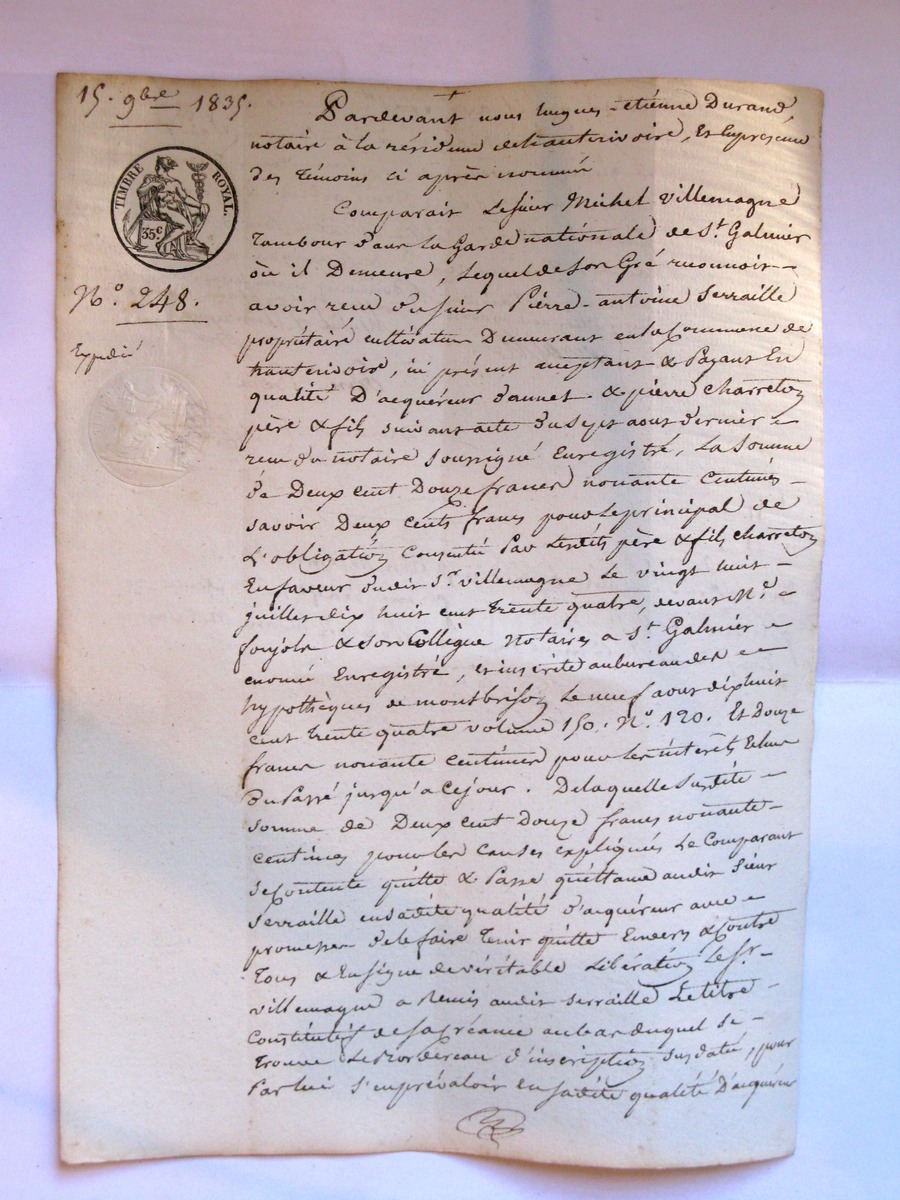 15. 9bre 1835.
TIMBRE ROYAL.
35c
No. 248.
Expédié
Pardevant nous hugues-étienne Durand,
notaire à la résidence de hauterivoire, Et En presence
des témoins ci après nommés
Comparait Le sieur Michel Villemagne
Tambour dans la Garde nationale de St. Galmier
où il Demeure, Lequel de son Gré reconnoit
avoir reçu du sieur Pierre-antoine Serraille
propriétaire cultivateur Demeurant en la Commune de
hauterivoire, ici présent acceptant & Payant En
qualité D'acquéreur d'annet & pierre Charreton
père & fils suivant acte du sept aout dernier
reçu du notaire soussigné Enregistré, La Somme
de Deux cent Douze francs nonante centimes
savoir Deux cents francs pour le principal de
L'obligation Consentie Par Lesdits père & fils charreton
En faveur dudit Sr. Villemagne Le vingt huit
juillet dix huit cent trente quatre, devant Me.
foujols & son Collègue Notaires a St. Galmier
Enregistré, et inscrite au bureau des
hypothèques de montbrison Le neuf aout dix huit
cent trente quatre volume 150. No. 120. Et Douze
francs nonante centimes pour les intérêts Echus
Du Passé jusqu'a ce jour. De laquelle Susdite
somme de Deux cent Douze francs nonante
centimes pour les causes expliqués Le Comparant
se Contente quitte & Passe quittance audit Sieur
Serraille en sadite qualité D'acquéreur avec
promesse de le faire tenir quitte Envers & Contre
Tous & En signe de véritable Libération Le Sr.
villemagne a Remis audit Serraille Le titre
Constitutif de sa créance au bas duquel se
trouve Le Bordereau d'inscription susdaté, pour
Par lui s'en prévaloir en sadite qualité D'acquéreur